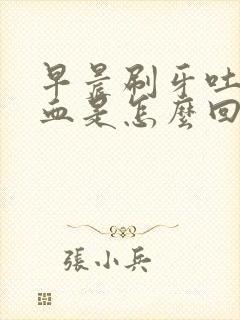 早晨刷牙吐
血是怎麼回
張小兵